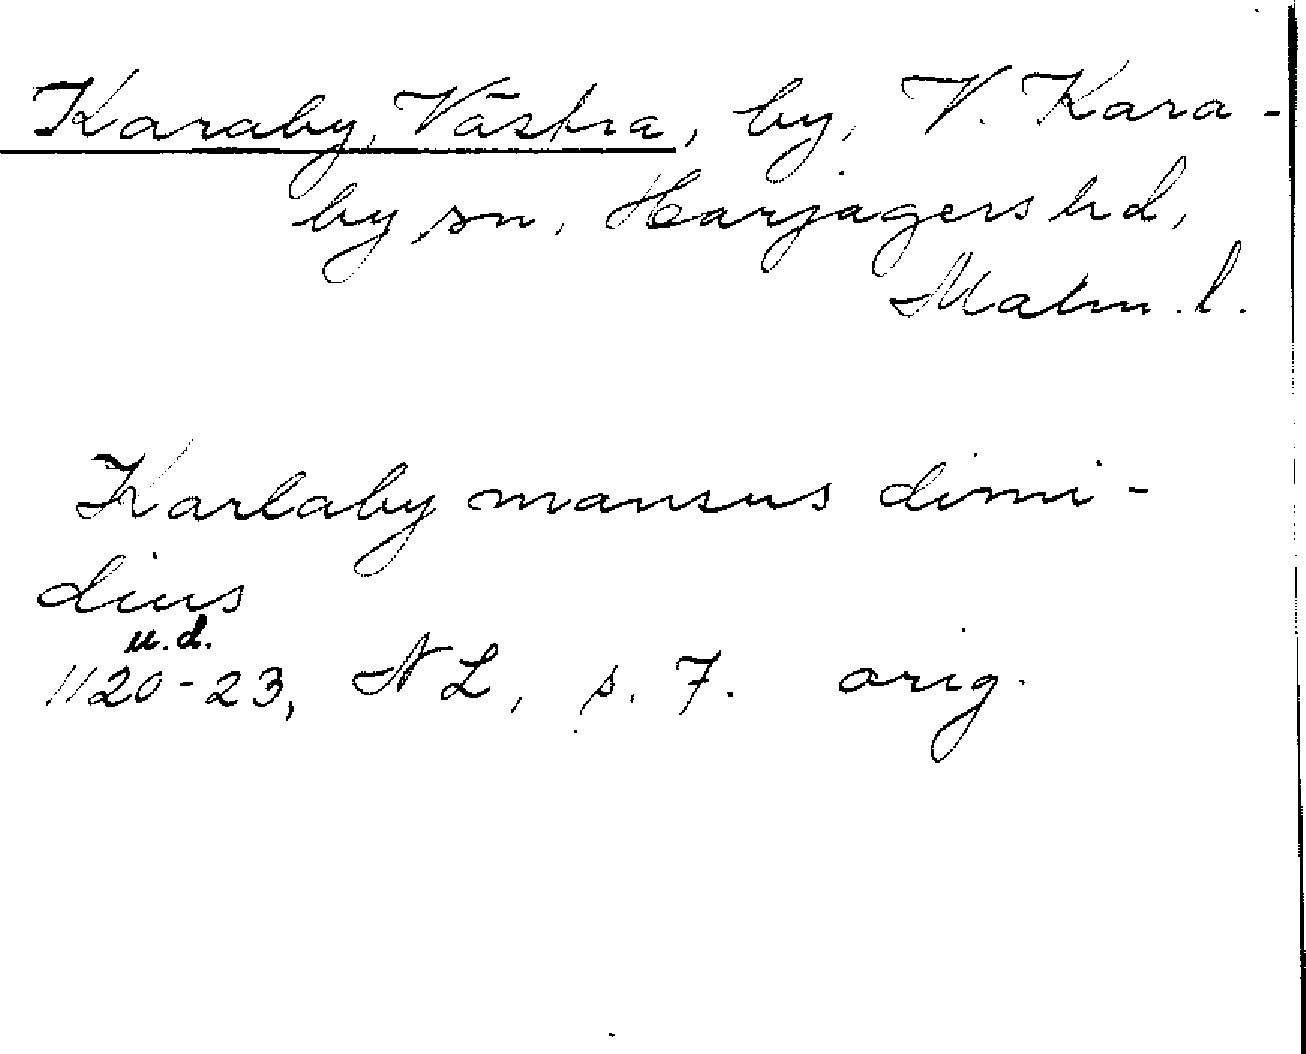 Karaby, Västra, by, V. Kara-
by sn, Harjagers hd,
Malm. l.
Karlaby mansus dimi-
dius
u.d.
1120-23, NL, s. 7. orig.